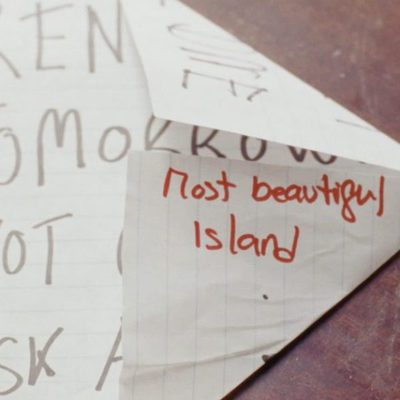 KEN
TOMORROW
OT
Most beautiful
Island
SK A